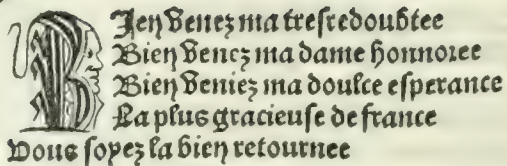 BIen venez ma tresredoubtee
Bien venez ma dame honnoree
Bien veniez ma doulce esperance
La plus gracieuse de france
Vous soyez la bien retournee